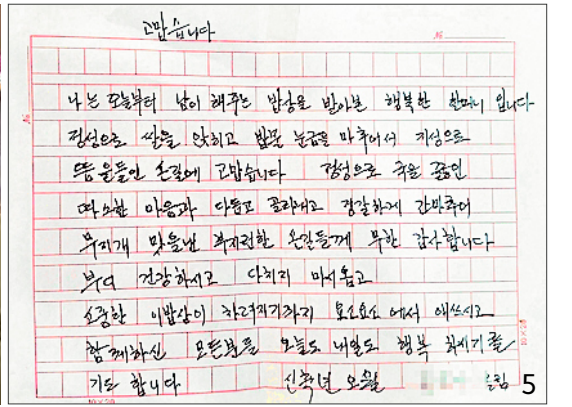 고맙습니다
№
나는 오늘부터 남이 해주는 밥상을 받아본 행복한 할머니 입니다
정성으로 쌀을 앉히고 밥물 눈금을 마추어서 지성으로
뜸을들인 손길에 고맙습니다 정성으로 국을 끓인
따스한 마음과 다듬고 골라내고 장갈하게 간마추어
무지개 맛을낸 부지런한 손길들께 무한 감사합니다
부디 건강하시고 다치지 마시옵고
소중한 이밥상이 차려지기까지 요소요소에서 애쓰시고
함께하신 모든분들 오늘도 내일도 행복 하시기를
기도 합니다 오월 드림
10×20
10×20
5